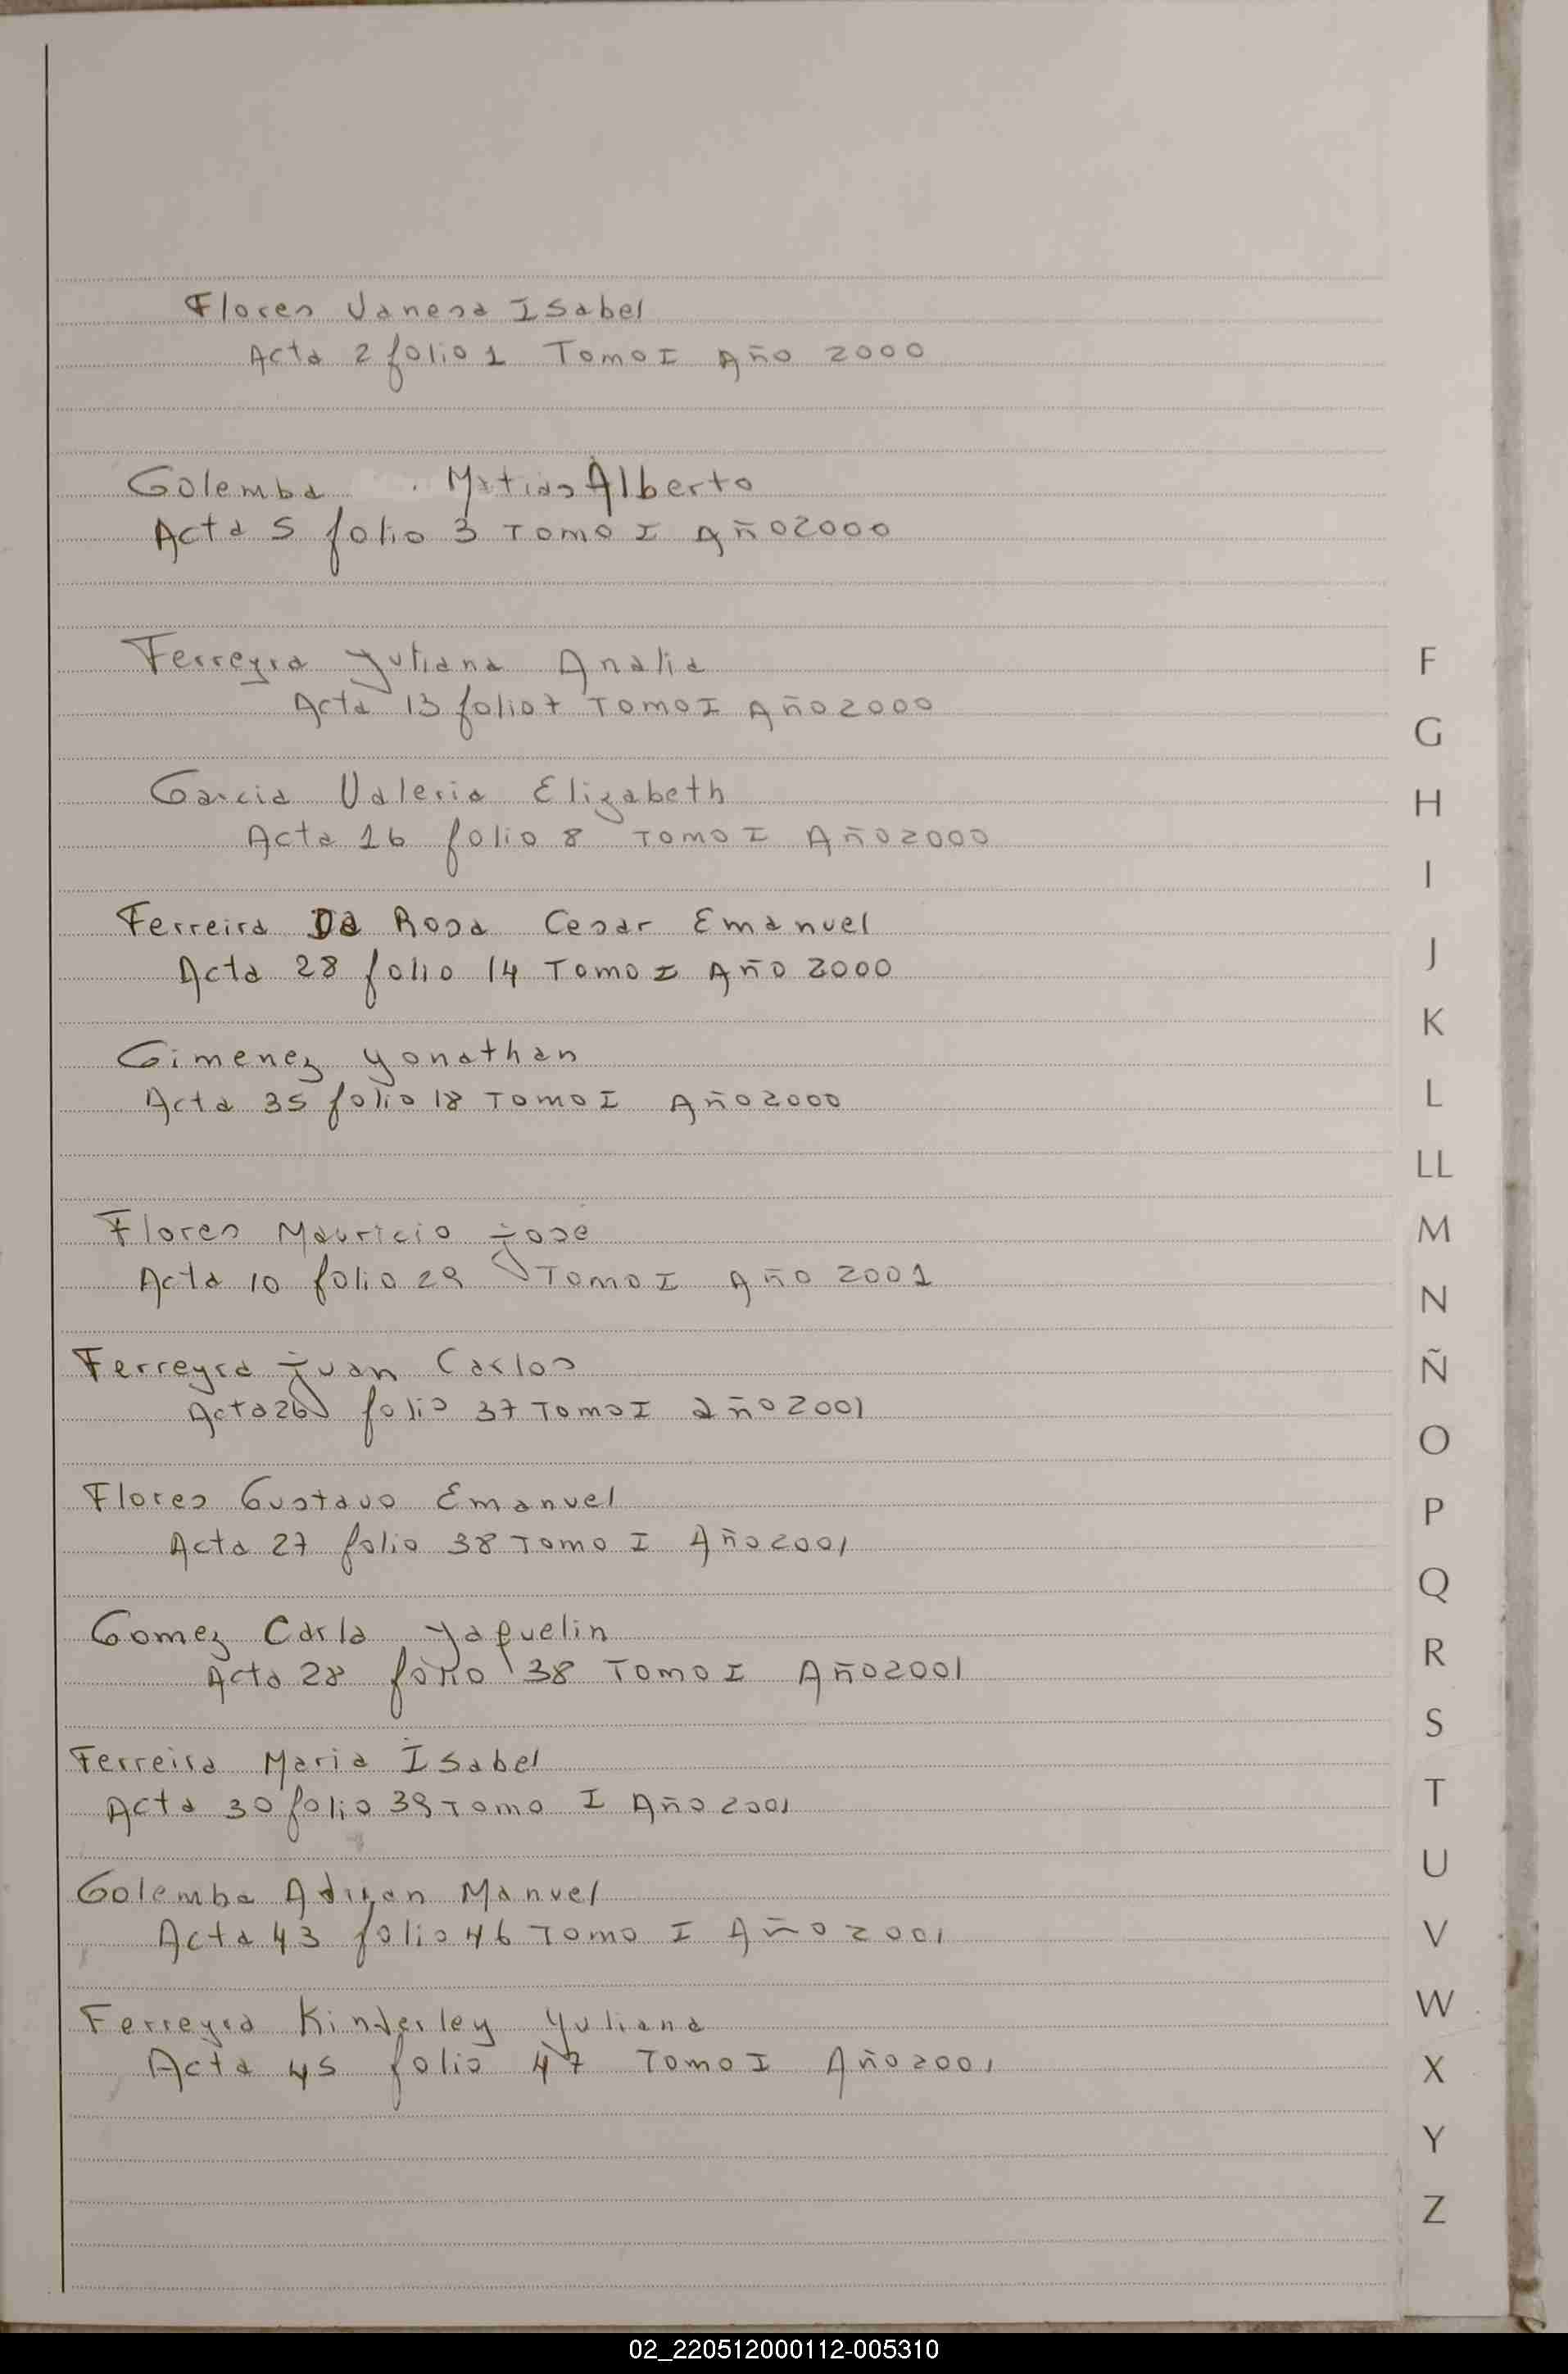 Flores Vanesa Isabel
Acta 2 folio 1 Tomo I Año 2000
Golemba . Matias Alberto
Acta 5 folio 3 Tomo I Año 2000
Ferreyra Yuliana Analia
Acta 13 folio 7 Tomo I Año 2000
Garcia Valeria Elizabeth
Acta 16 folio 8 Tomo I Año 2000
Ferreira Da Rosa Cesar Emanuel
Acta 28 folio 14 Tomo I Año 2000
Gimenez Yonathan
Acta 35 folio 18 Tomo I Año 2000
Flores Mauricio jose
Acta 10 folio 29 Tomo I Año 2001
Ferreyra juan Carlos
Acta 26 folio 37 Tomo I año 2001
Flores Gustavo Emanuel
Acta 27 folio 38 Tomo I Año 2001
Gomez Carla Yaquelin
Acta 28 folio 38 Tomo I Año 2001
Ferreira Maria Isabel
Acta 30 folio 39 Tomo I Año 2001
Golemba Adrian Manuel
Acta 43 folio 46 Tomo I Año 2001
Ferreyra Kinderley Yuliana
Acta 45 folio 47 Tomo I Año 2001
F
G
H
I
J
K
L
LL
M
N
Ñ
O
P
Q
R
S
T
U
V
W
X
Y
Z
02_220512000112-005310